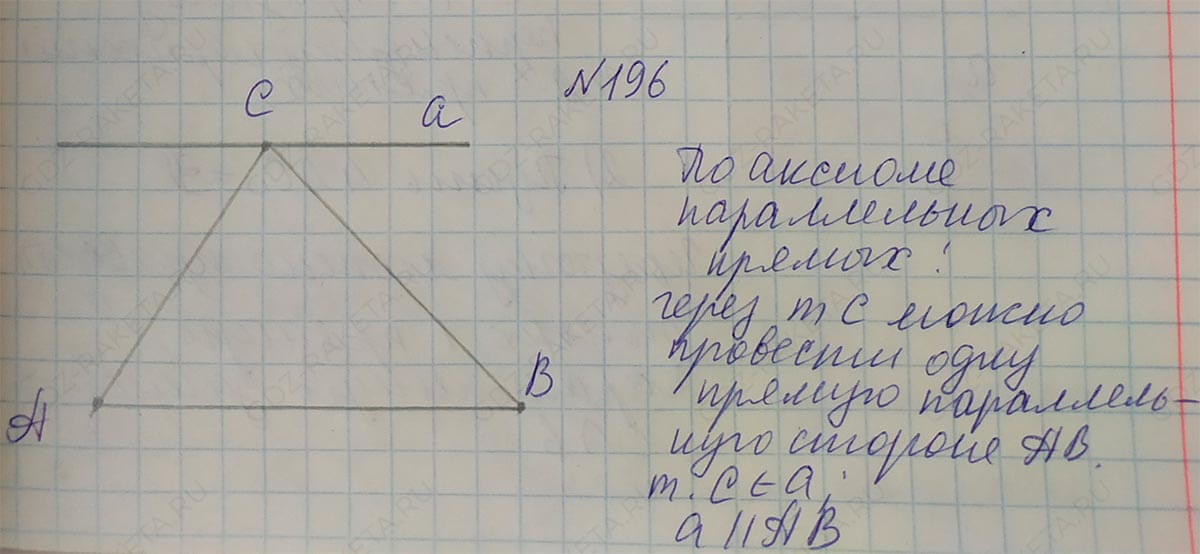 N196
C
a
По аксиоме
параллельных
прямых:
через т C можно
провести одну
прямую параллель-
ную стороне AB.
т. C ∈ a;
a || AB
B
A